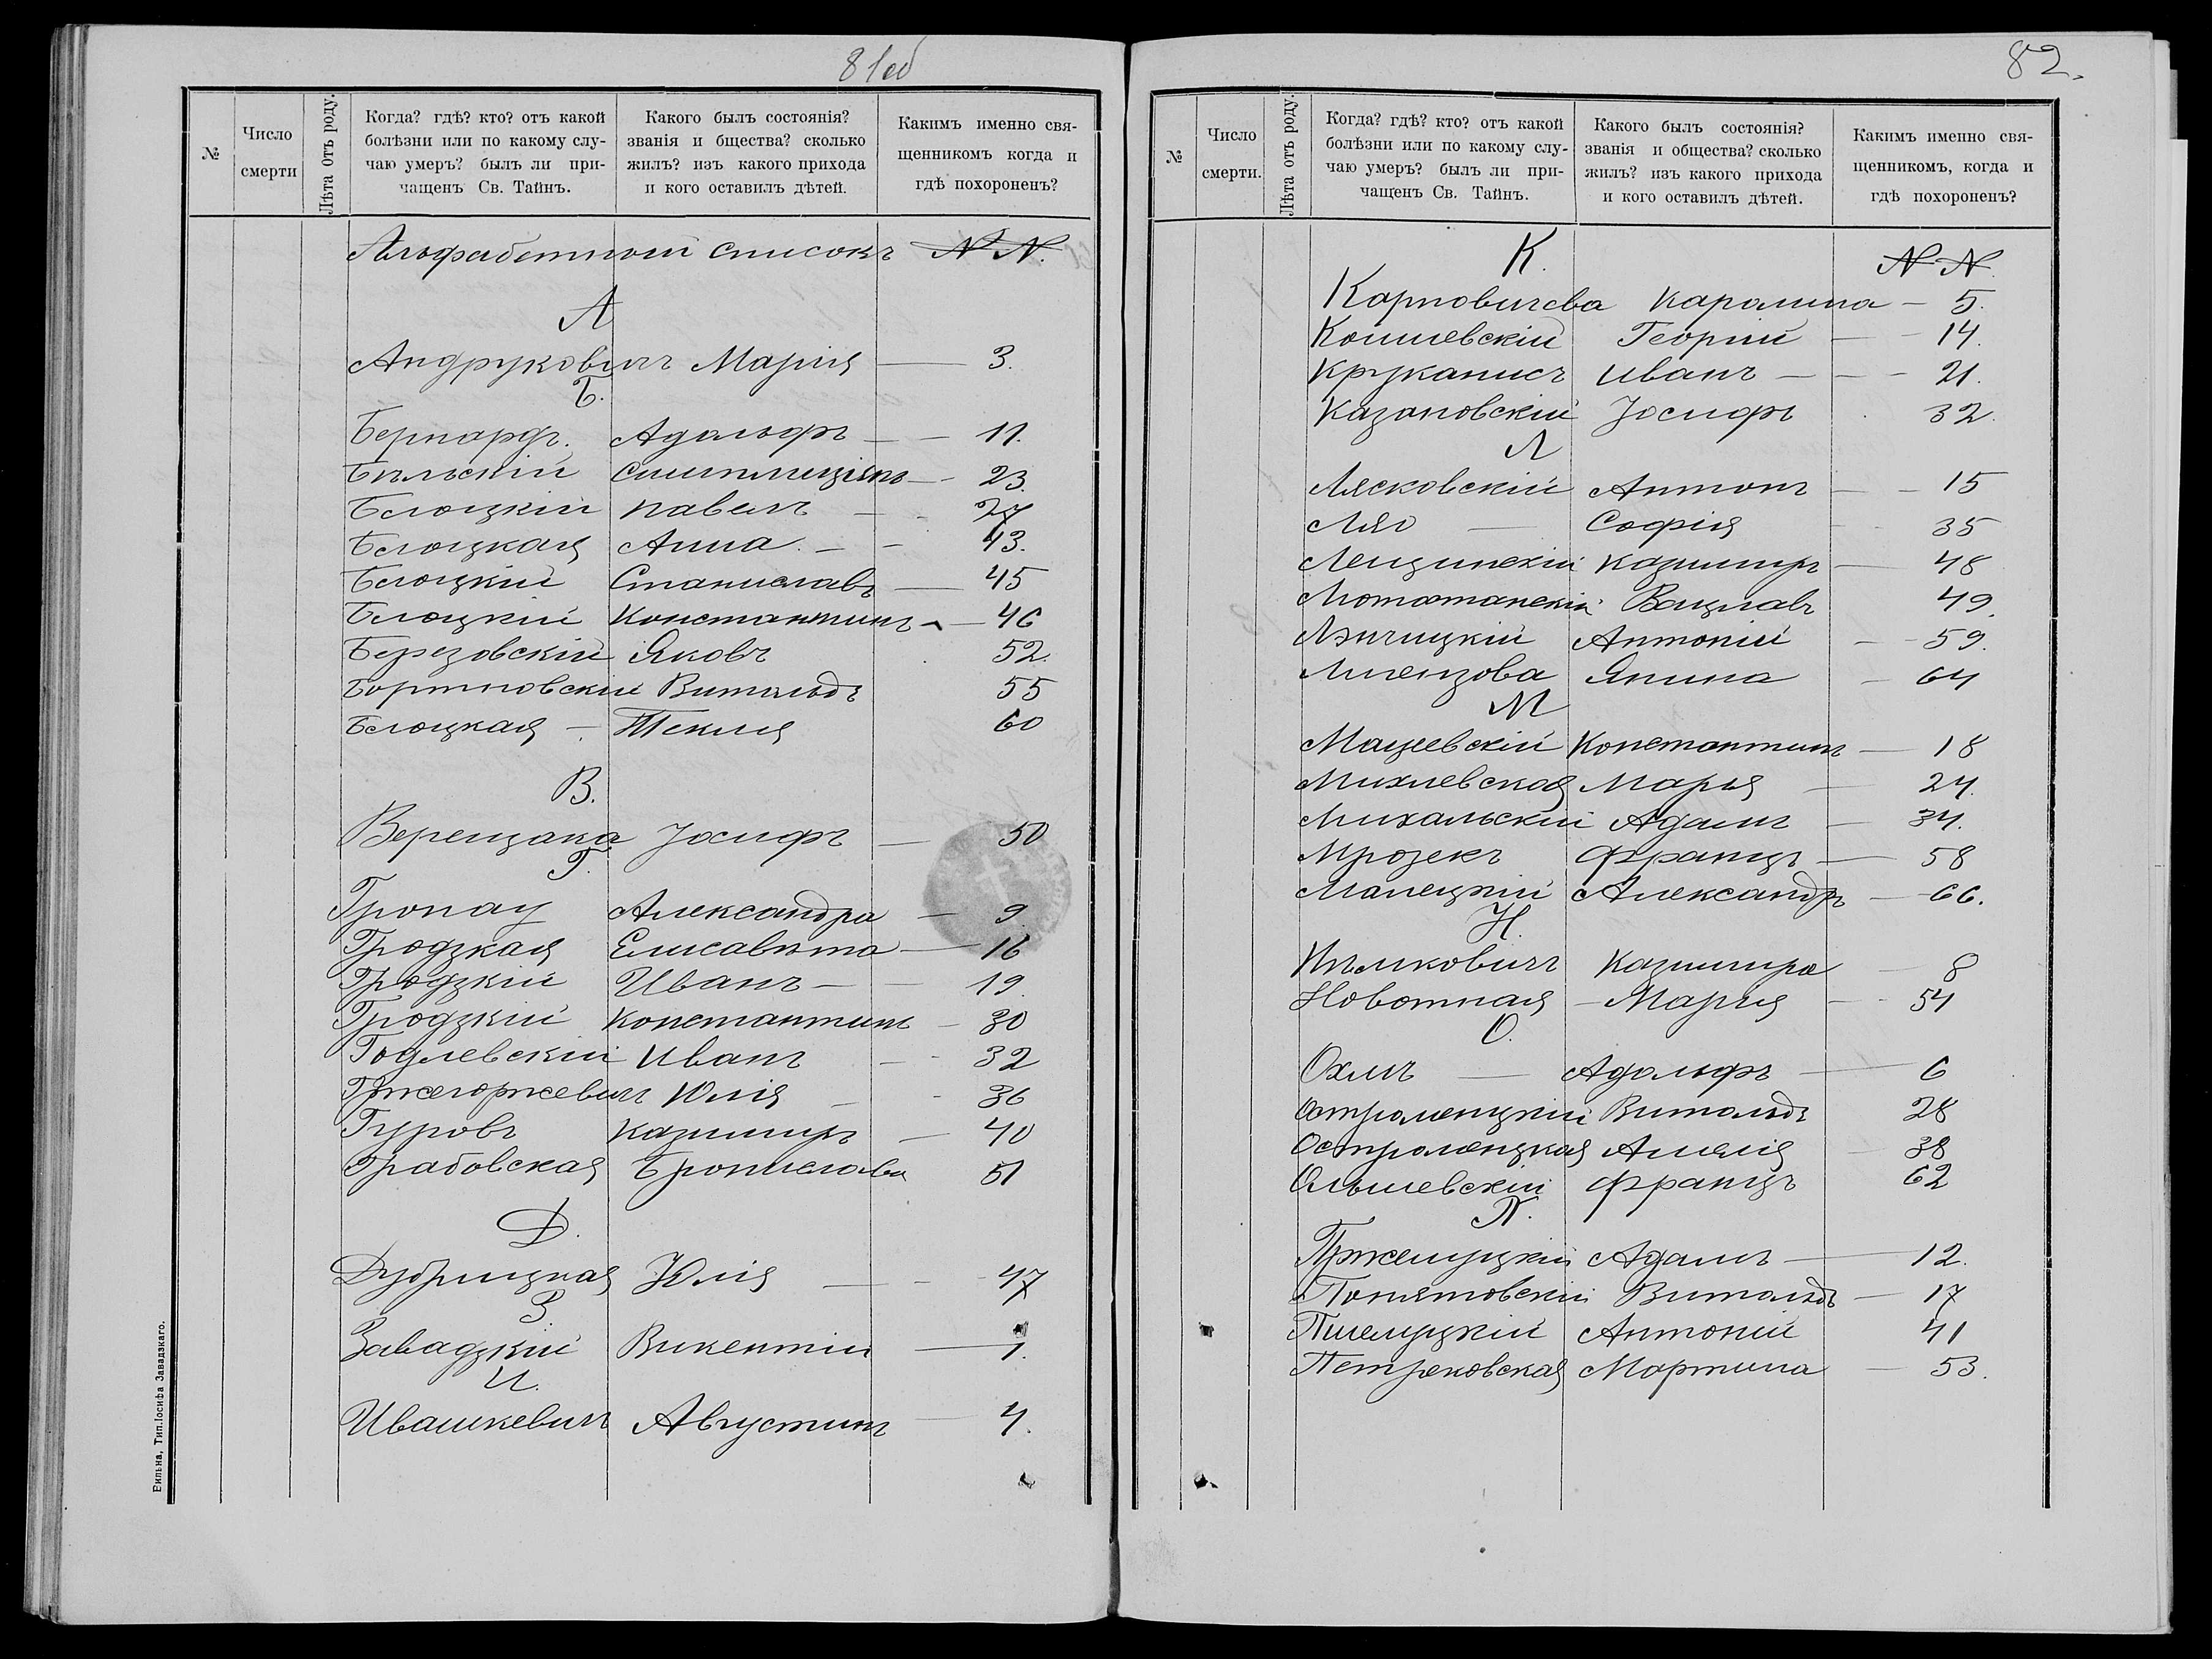 81об
№
Число смерти
Лѣта отъ роду.
Когда? гдѣ? кто? отъ какой
болѣзни или по какому слу-
чаю умеръ? былъ ли при-
чащенъ Св. Тайнъ.
Какого былъ состоянія?
званія и бщества? сколько
жилъ? изъ какого прихода
и кого оставилъ дѣтей.
Какимъ именно свя-
щенникомъ когда и
гдѣ похороненъ?
Альфабетный списокъ N N.
А
Андруковичъ Марія — 3.
Б.
Бернардъ. Адольфъ — — 11.
Бѣльскій Симплиціянъ — 23.
Блоцкій Павелъ — - 27
Блоцкая Анна. — - 43.
Блоцкій Станиславъ — 45
Блоцкій Константинъ — 46
Березовскій Яковъ 52.
Бортновскій Витольдъ 55
Блоцкая — Текля 60
В.
Верещака Іосифъ — 50
Г.
Гронау Александра — 9.
Гродзкая Елисавѣта — 16
Гродзкій Иванъ — — 19.
Гродзкій Константинъ — 30
Годлевскій Иванъ — - 32
Гржегоржевичъ Юлія — - 36
Гуровъ Казимиръ — 40
Грабовская Бронислава 51
Д.
Дубрицкая Юлія — - 47
З.
Завадзкій Викентій — 1.
И.
Ивашкевичъ Августинъ 4.
Вильна, Тип. Іосифа Завадзкаго.
82.
№
Число смерти.
Лѣта отъ роду.
Когда? гдѣ? кто? отъ какой
болѣзни или по какому слу-
чаю умеръ? былъ ли при-
чащенъ Св. Тайнъ.
Какого былъ состоянія?
званія и общества? сколько
жилъ? изъ какого прихода
и кого оставилъ дѣтей.
Какимъ именно свя-
щенникомъ, когда и
гдѣ похороненъ?
К. N N.
Карповичева Каролина — 5.
Кошлевскій Георгій — - 14.
Круканисъ Иванъ — - - 21.
Казановскій Іосифъ 32.
Л
Лясковскій Антонъ — - 15
Ляо — Софія - 35
Лещинскій Казимиръ — 48
Лотостанскій Вацлавъ 49.
Лэнчицкій Антоній — - 59.
Лигензова Янина — 64
М
Мацеевскій Константинъ — 18
Михлевская Марья — 24.
Михальскій Адамъ — 34.
Мрозекъ Францъ — 58
Малецкій Александръ — 66.
Н.
Нѣмковичъ Казимира — 8
Новотная — Марія — - 54
О.
Охмъ — Адольфъ — 6
Остроленцкій Витольдъ 28
Остроленцкая Амелія — 38
Ольшевскій Францъ 62
П.
Пржелуцкій Адамъ — 12.
Понятовскій Витольдъ — 17
Пшелуцкій Антоній 41
Петраковская Мартина — 53.